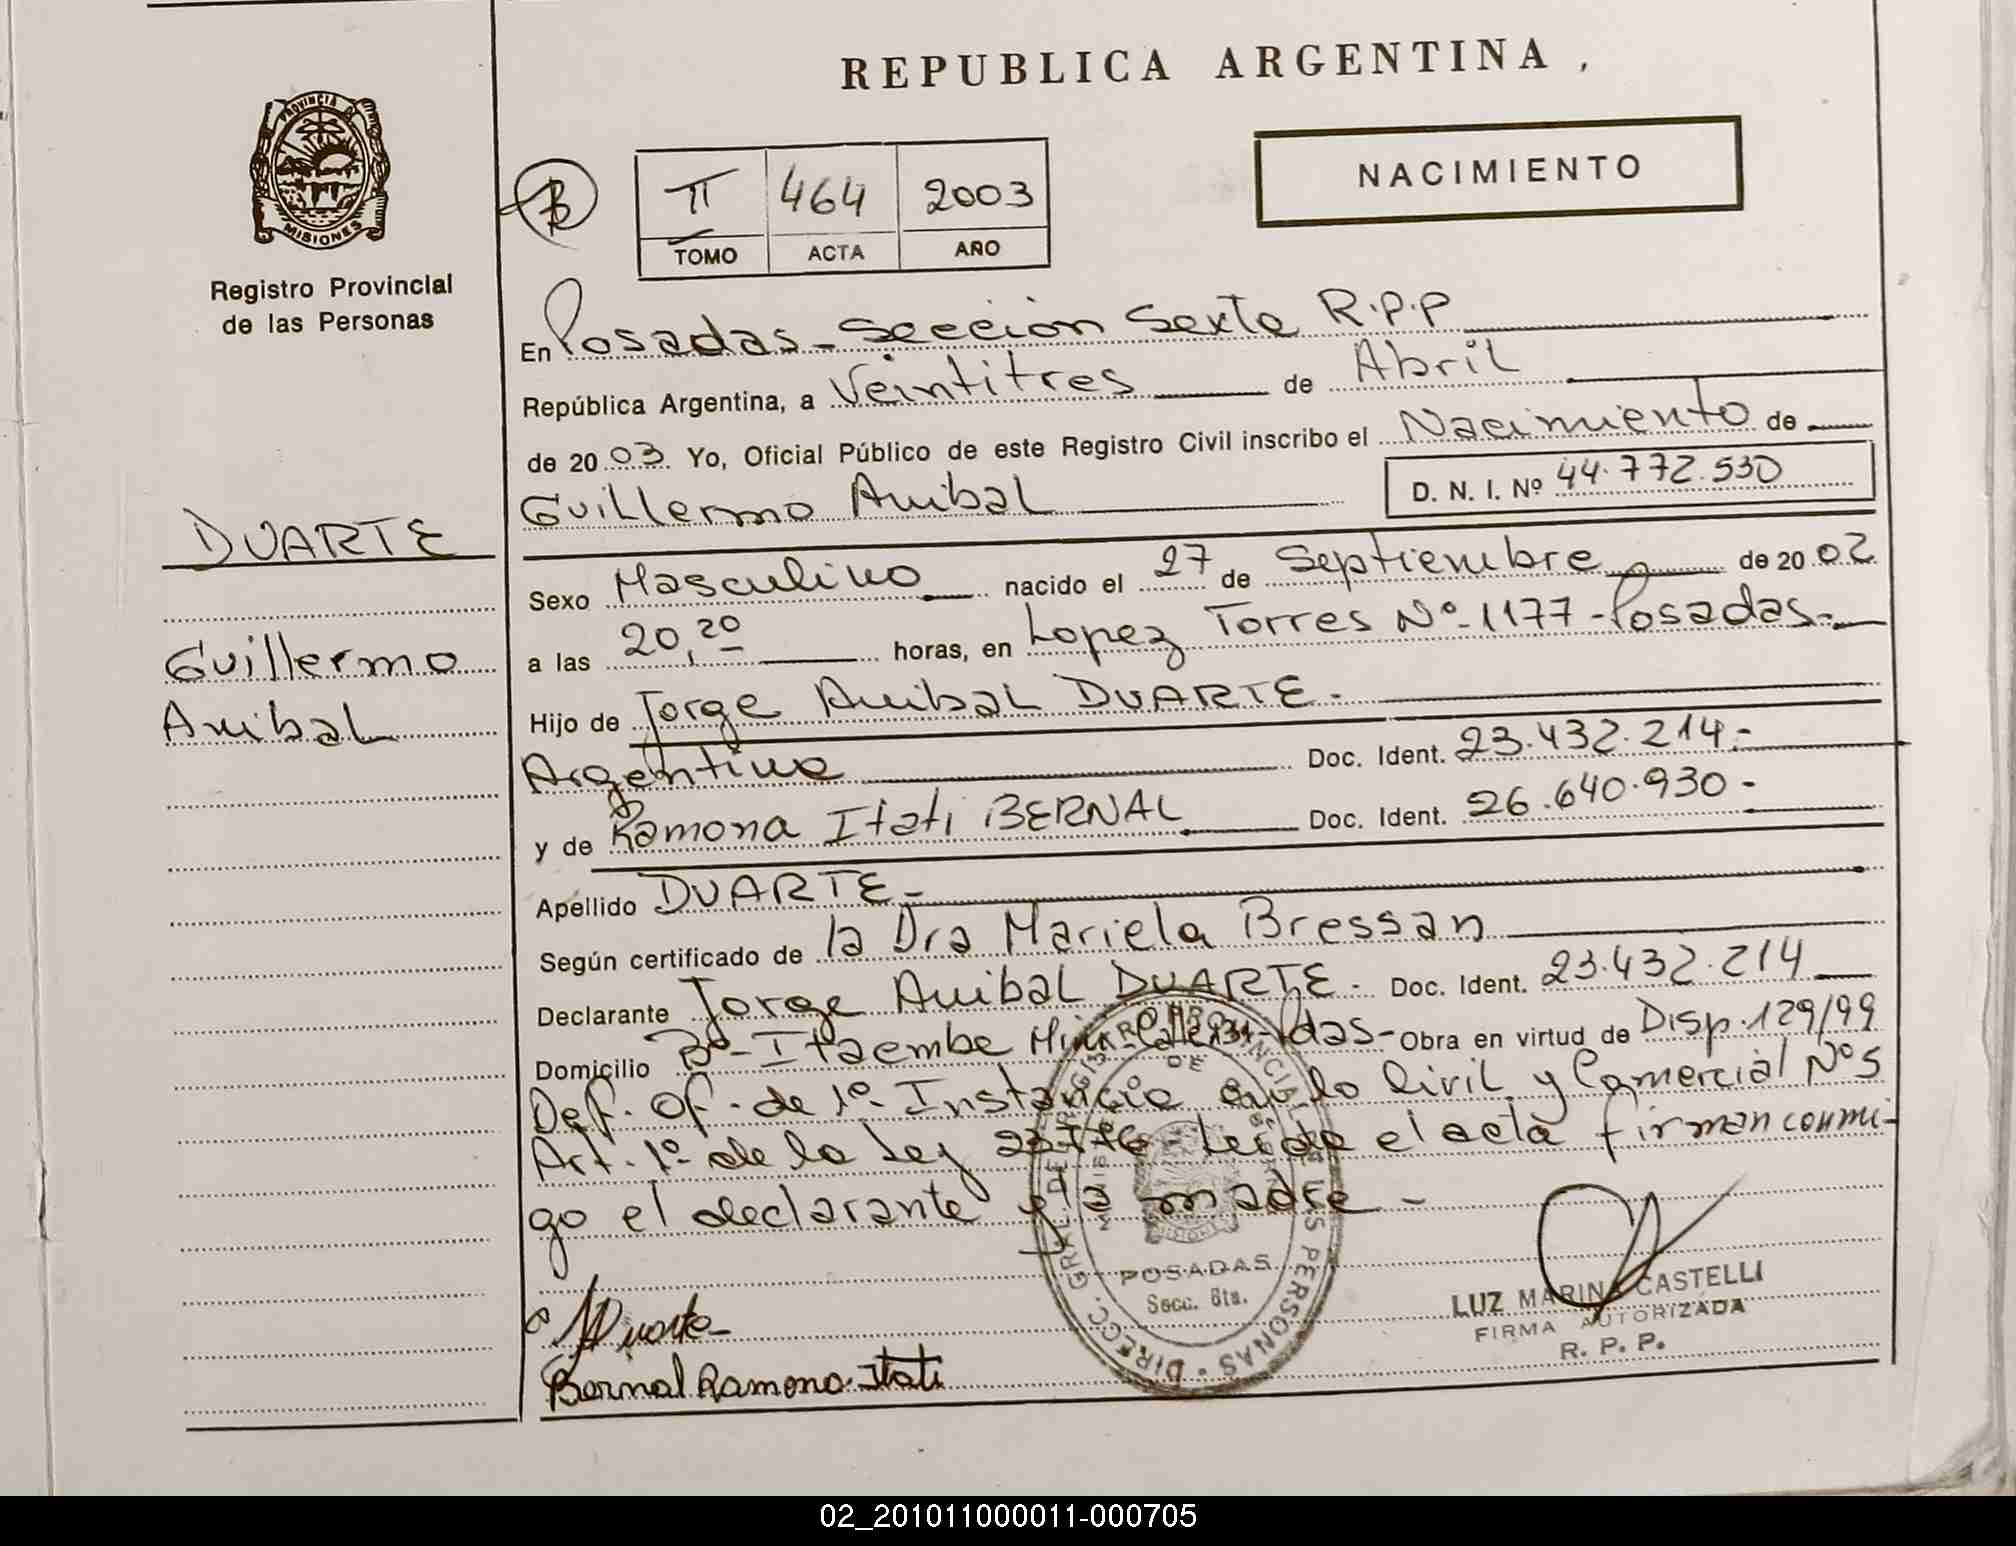 REPUBLICA ARGENTINA
PROVINCIA DE
MISIONES
Registro Provincial
de las Personas
B
II 464 2003
TOMO ACTA AÑO
NACIMIENTO
En Posadas - Sección Sexta R.P.P
República Argentina, a Veintitres de Abril
de 2003. Yo, Oficial Público de este Registro Civil inscribo el Nacimiento de
Guillermo Anibal D. N. I. Nº 44.772.530
DUARTE
Guillermo
Anibal
Sexo Masculino nacido el 27 de Septiembre de 2002
a las 20,20 horas, en Lopez Torres Nº 1177 - Posadas.-
Hijo de Jorge Anibal DUARTE.-
Argentino Doc. Ident. 23.432.214.-
y de Ramona Itati BERNAL Doc. Ident. 26.640.930-
Apellido DUARTE-
Según certificado de la Dra Mariela Bressan
Declarante Jorge Anibal DUARTE. Doc. Ident. 23.432.214
Domicilio Bº- Itaembe Pdas- Obra en virtud de Disp. 129/99
Def. Of. de 1º Instancia en lo Civil y Comercial Nº 5
Art. 1º de la Ley Leida el acta firman conmi-
go el declarante y la madre -
DIRECC. GRAL. DEL REGISTRO PROVINCIAL DE LAS PERSONAS
POSADAS
Secc. 6ta.
Duarte
Bernal Ramona Itati
LUZ MARINA CASTELLI
FIRMA AUTORIZADA
R. P. P.
02_201011000011-000705